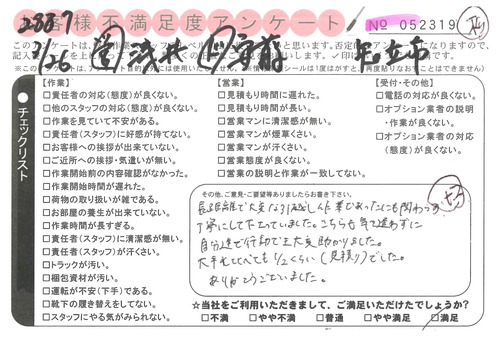 お客様不満足度アンケート
№ 052319
28837
3/26
チェックリスト
【作業】
□責任者の対応(態度)が良くない。
□他のスタッフの対応(態度)が良くない。
□作業を見ていて不安がある。
□責任者(スタッフ)に好感が持てない。
□お客様への挨拶が出来ていない。
□ご近所への挨拶・気遣いが無い。
□作業開始前の内容確認がなかった。
□作業開始時間が遅れた。
□荷物の取り扱いが雑である。
□お部屋の養生が出来ていない。
□作業時間が長すぎる。
□責任者(スタッフ)に清潔感が無い。
□責任者(スタッフ)が汗くさい。
□トラックが汚い。
□梱包資材が汚い。
□運転が不安(下手)である。
□靴下の履き替えをしてない。
□スタッフにやる気がみられない。
【営業】
□見積もり時間に遅れた。
□見積もり時間が長い。
□営業マンに清潔感が無い。
□営業マンが煙草くさい。
□営業マンが汗くさい。
□営業態度が良くない。
□営業の説明と作業が一致してない。
【受付・その他】
□電話の対応が良くない。
□オプション業者の説明・作業が良くない。
□オプション業者の対応(態度)が良くない。
その他、ご意見・ご要望等ありましたらお書き下さい。
長距離で大変な引越しの仕事であったにも関わらず
丁寧にして下さっていました。こちらも気を遣わずに
自分達で行動できて大変助かりました。
大手と比べても1/2くらい(見積り)でした。
ありがとうございました。
☆当社をご利用いただきまして、ご満足いただけたでしょうか?
□不満 □やや不満 □普通 □やや満足 □満足